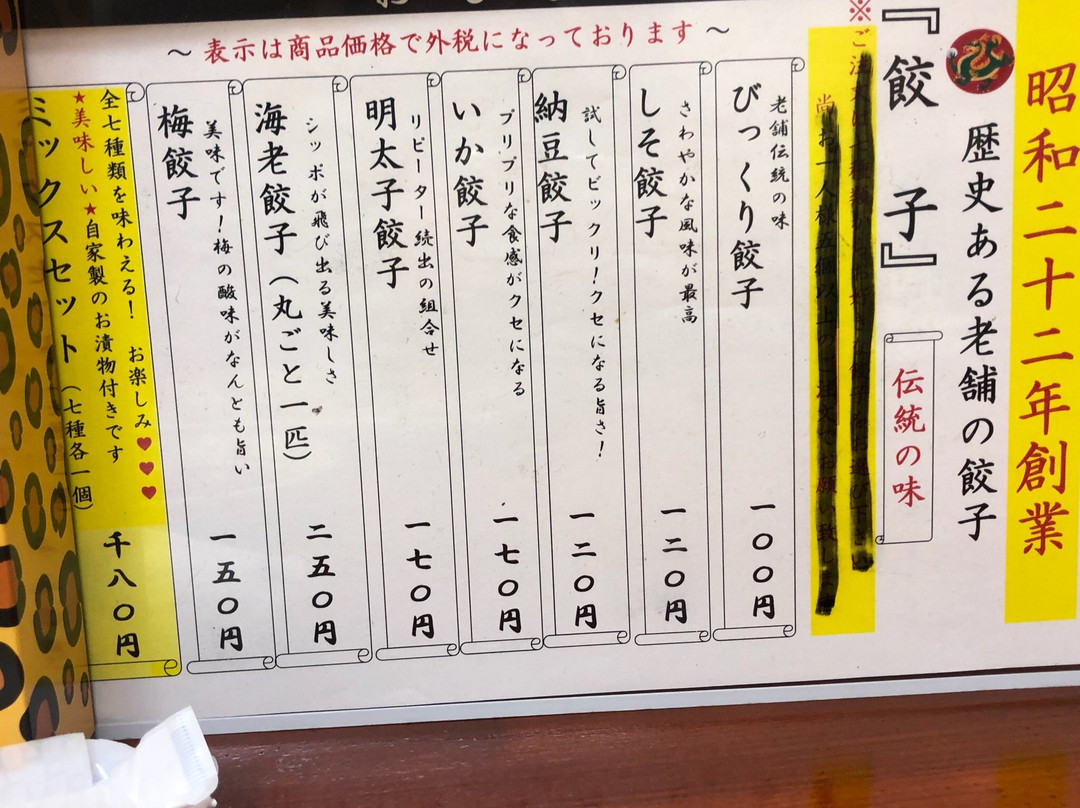 昭和二十二年創業
歴史ある老舗の餃子
『餃 子』
伝統の味
～ 表示は商品価格で外税になっております ～
老舗伝統の味
びっくり餃子
一〇〇円
さわやかな風味が最高
しそ餃子
一二〇円
試してビックリ!クセになる旨さ!
納豆餃子
一二〇円
プリプリな食感がクセになる
いか餃子
一七〇円
リピーター続出の組合せ
明太子餃子
一七〇円
シッポが飛び出る美味しさ
海老餃子(丸ごと一匹)
二五〇円
美味です!梅の酸味がなんとも旨い
梅餃子
一五〇円
全七種類を味わえる! お楽しみ♥♥♥
★美味しい★自家製のお漬物付きです
ミックスセット(七種各一個)
千八〇円